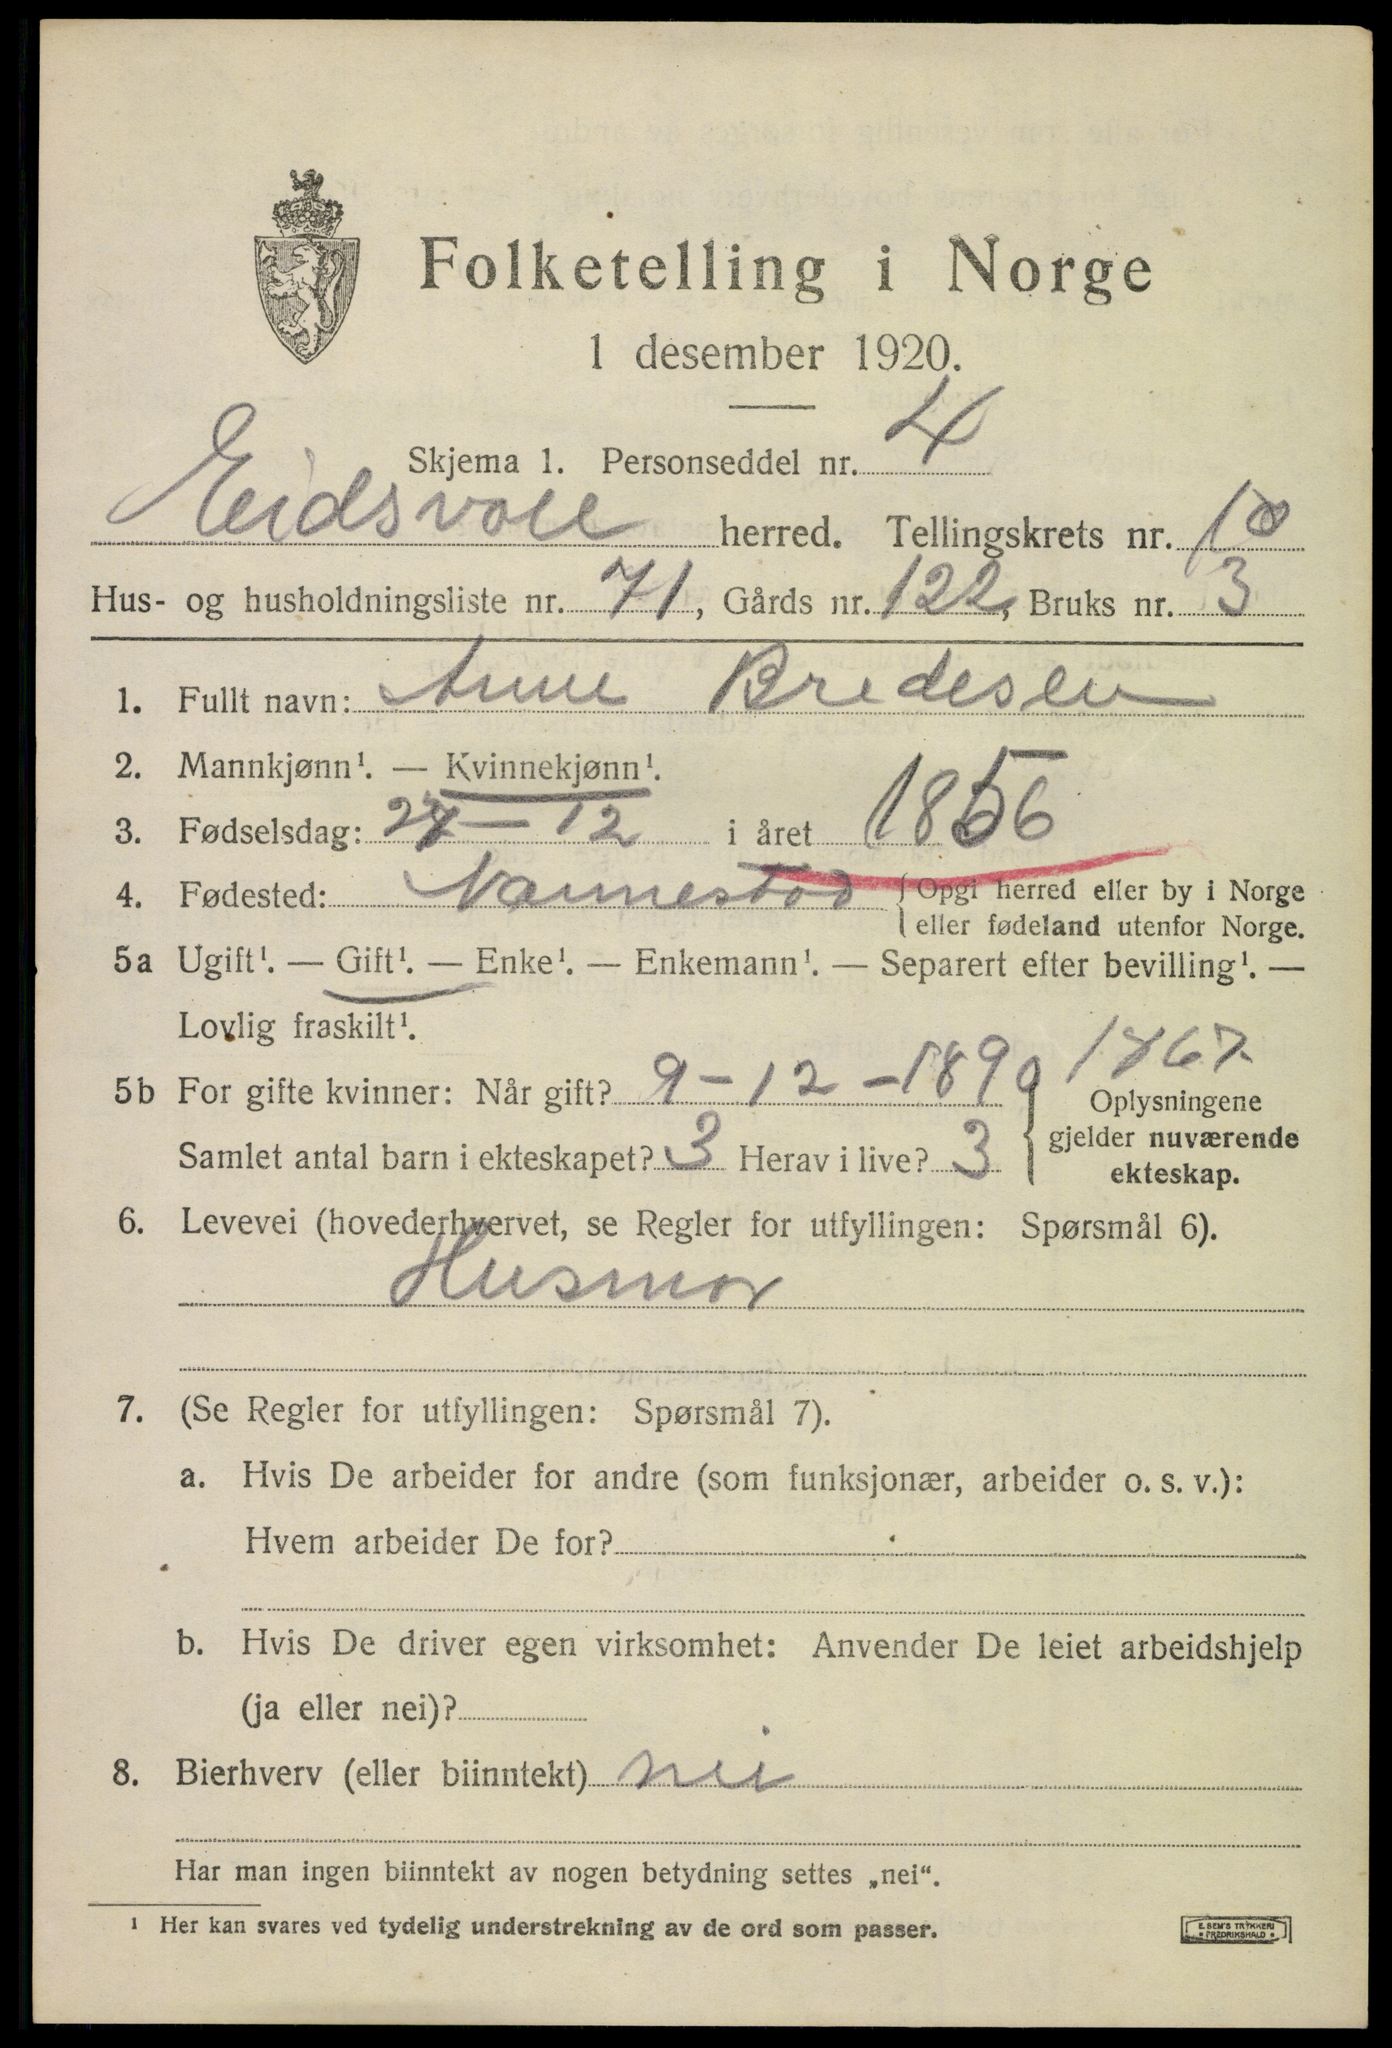 Folketelling i Norge
1 desember 1920.
Skjema 1. Personseddel nr. 4
Eidsvoll herred. Tellingskrets nr. 10
Hus- og husholdningsliste nr. 71, Gårds nr. 122, Bruks nr. 3
1. Fullt navn: Anne Bredesen
2. Mannkjønn¹. — Kvinnekjønn¹.
3. Fødselsdag: 27 — 12 i året 1856
4. Fødested: Nannestad { Opgi herred eller by i Norge
eller fødeland utenfor Norge.
5a Ugift¹. — Gift¹. — Enke¹. — Enkemann¹. — Separert efter bevilling¹. —
Lovlig fraskilt¹.
1867
5b For gifte kvinner: Når gift? 9 – 12 – 1890
Samlet antal barn i ekteskapet? 3 Herav i live? 3
Oplysningene
gjelder nuværende
ekteskap.
6. Levevei (hovederhvervet, se Regler for utfyllingen: Spørsmål 6).
Husmor
7. (Se Regler for utfyllingen: Spørsmål 7).
a. Hvis De arbeider for andre (som funksjonær, arbeider o. s. v.):
Hvem arbeider De for?
b. Hvis De driver egen virksomhet: Anvender De leiet arbeidshjelp
(ja eller nei)?
8. Bierhverv (eller biinntekt) nei
Har man ingen biinntekt av nogen betydning settes „nei“.
¹ Her kan svares ved tydelig understrekning av de ord som passer.
E. SEM'S TRYKKERI
FREDRIKSHALD